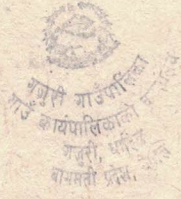 गजुरी गाउँपालिका
गाउँ कार्यपालिकाको कार्यालय
गजुरी, धादिङ
बागमती प्रदेश, नेपाल